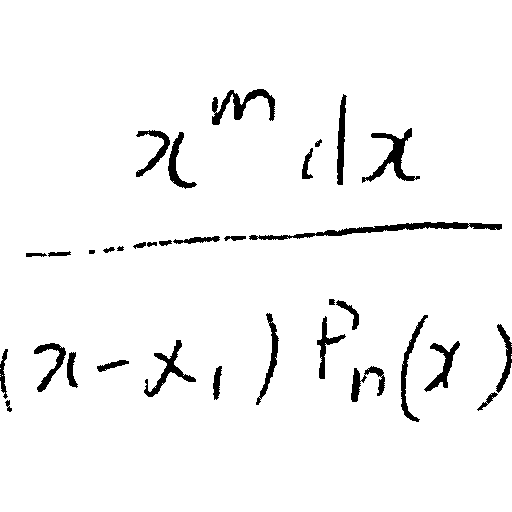 \frac{x^m dx}{(x-x_1) P_n(x)}